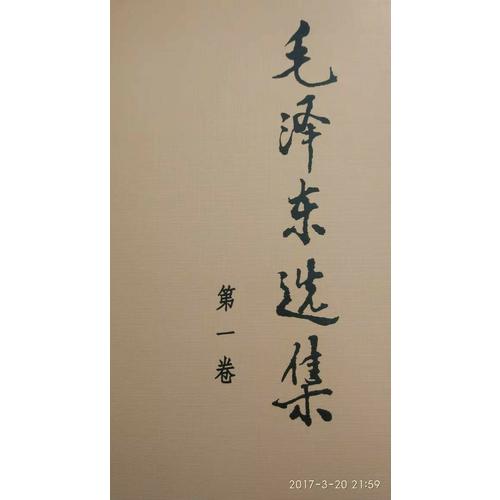 毛泽东选集
第一卷
2017-3-20 21:59